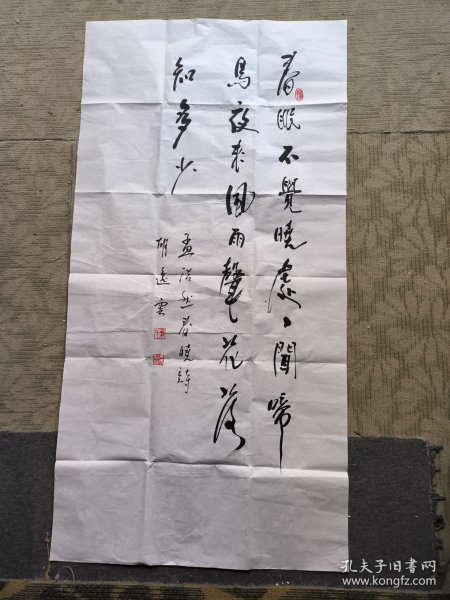 春眠不覺曉處〻聞啼
鳥夜來風雨聲花落
知多少
孟浩然春曉詩
胡遠雲
孔夫子旧书网
www.kongfz.com